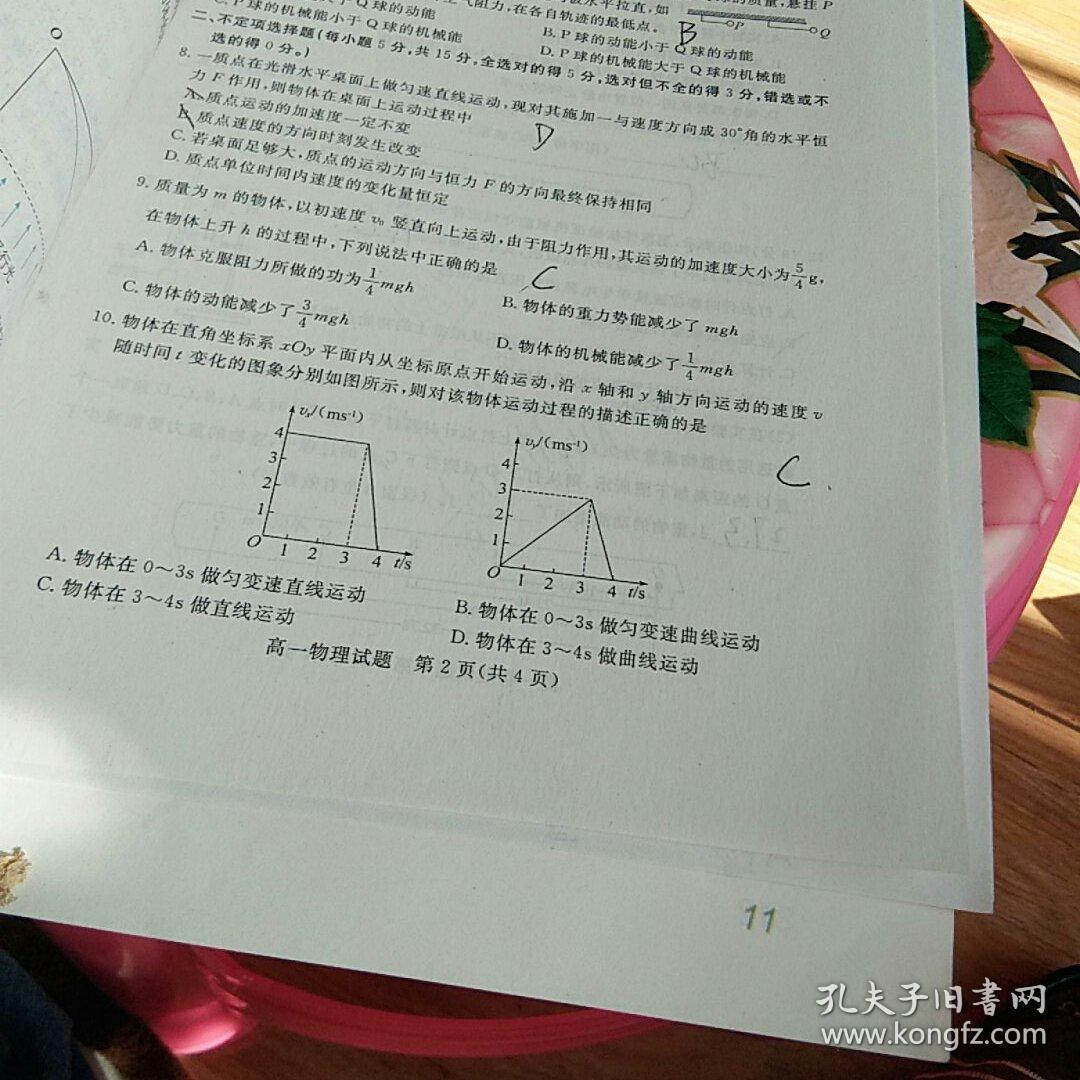 气阻力,在各自轨迹的最低点。
球的质量,悬挂P
水平拉直,如
Q球的动能
P球的机械能小于Q球的机械能
B.P球的动能小于Q球的动能
D.P球的机械能大于Q球的机械能
B
P
Q
二、不定项选择题(每小题5分,共15分,全选对的得5分,选对但不全的得3分,错选或不
选的得0分。)
8. 一质点在光滑水平桌面上做匀速直线运动,现对其施加一与速度方向成30°角的水平恒
力F作用,则物体在桌面上运动过程中
D
A.质点运动的加速度一定不变
B.质点速度的方向时刻发生改变
C. 若桌面足够大,质点的运动方向与恒力F的方向最终保持相同
D. 质点单位时间内速度的变化量恒定
9. 质量为m的物体,以初速度v₀竖直向上运动,由于阻力作用,其运动的加速度大小为5/4g,
在物体上升h的过程中,下列说法中正确的是
C
A. 物体克服阻力所做的功为1/4mgh
B. 物体的重力势能减少了mgh
C. 物体的动能减少了3/4mgh
D. 物体的机械能减少了1/4mgh
10. 物体在直角坐标系xOy平面内从坐标原点开始运动,沿x轴和y轴方向运动的速度v
随时间t变化的图象分别如图所示,则对该物体运动过程的描述正确的是
C.
vₓ/(ms⁻¹)
4
3
2
1
O 1 2 3 4 t/s
vᵧ/(ms⁻¹)
4
3
2
1
O 1 2 3 4 t/s
A. 物体在0～3s做匀变速直线运动
B. 物体在0～3s做匀变速曲线运动
C. 物体在3～4s做直线运动
D. 物体在3～4s做曲线运动
高一物理试题 第2页(共4页)
11
孔夫子旧書网
www.kongfz.com